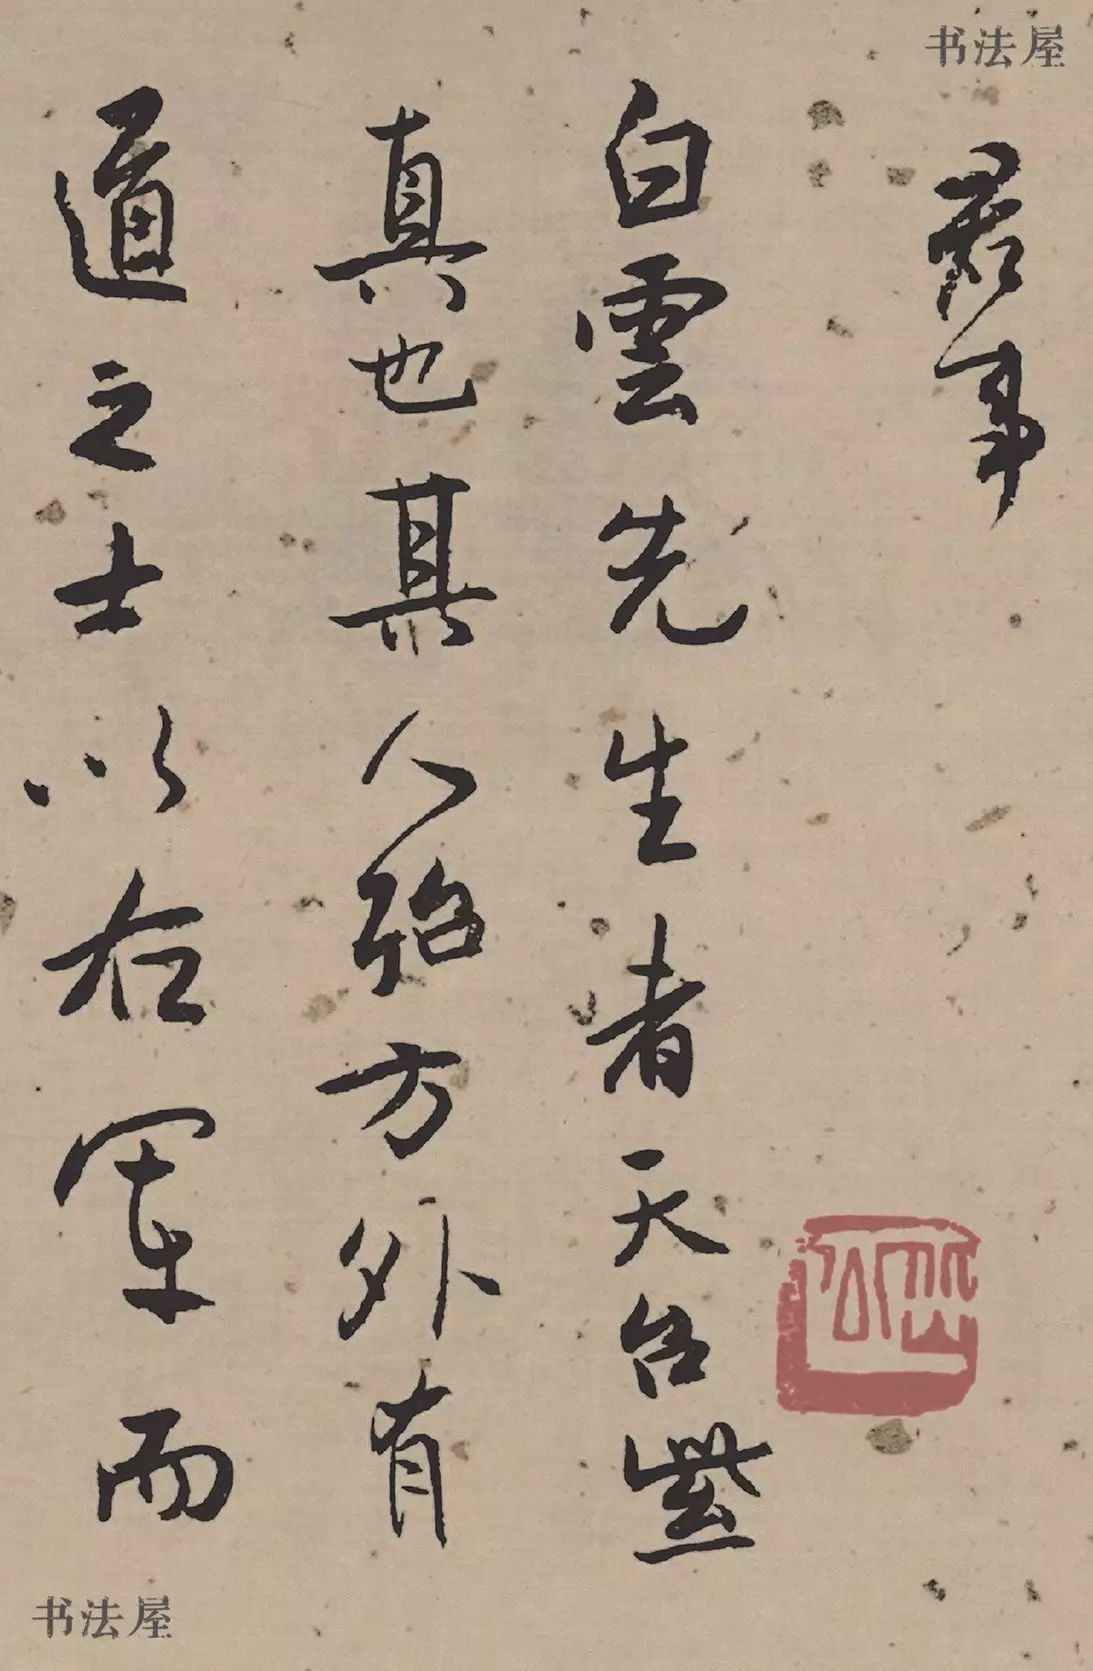 书法屋
君事
白雲先生者天台紫
真也其人殆方外有
道之士以右軍而
书法屋